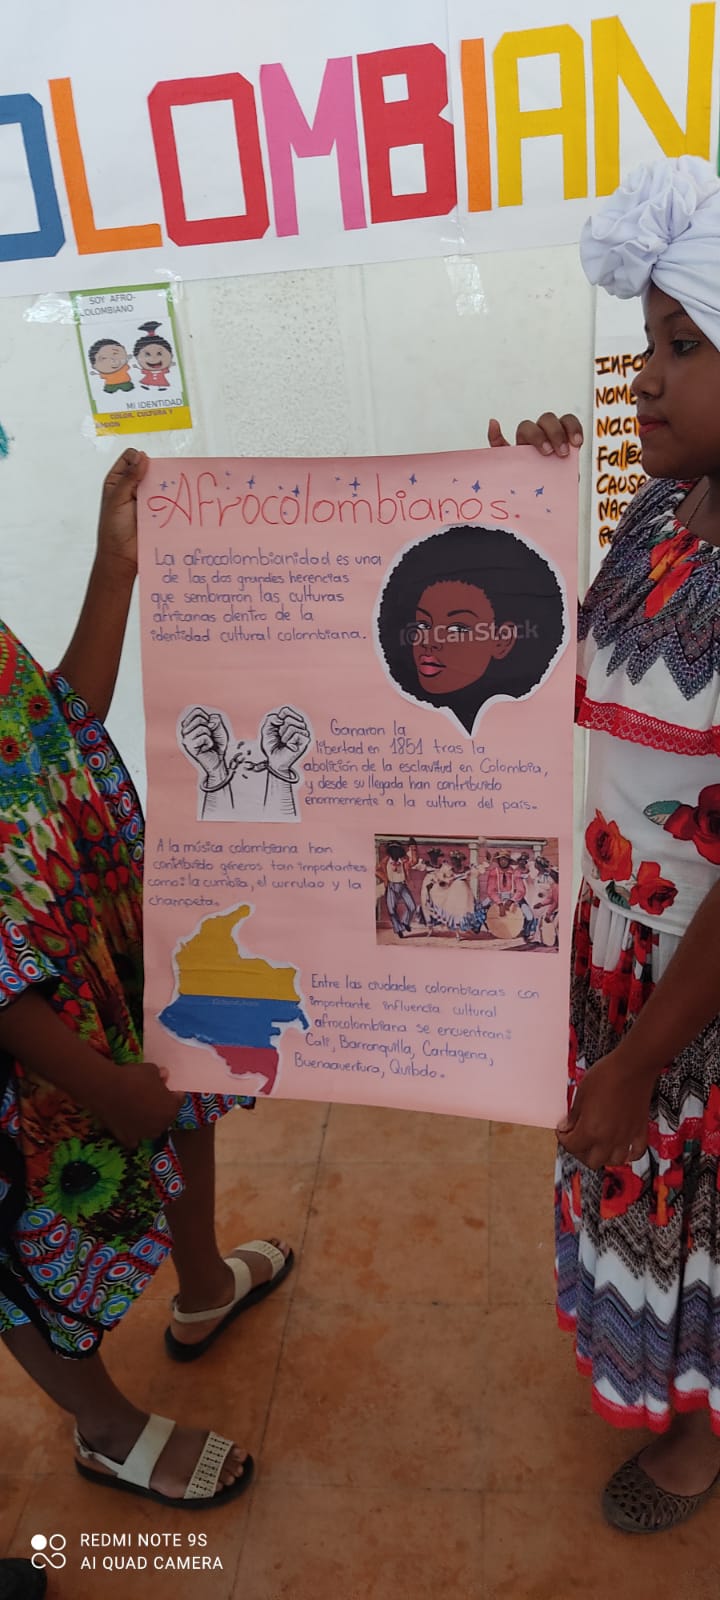 OLOMBIAN
SOY AFRO-
COLOMBIANO
MI IDENTIDAD
COLOR, CULTURA Y
Afrocolombianos.
La afrocolombianidad es una
de las dos grandes herencias
que sembraron las culturas
africanas dentro de la
identidad cultural colombiana.
CanStock
Ganaron la
libertad en 1851 tras la
abolición de la esclavitud en Colombia,
y desde su llegada han contribuido
enormemente a la cultura del país.
A la música colombiana han
contribuido géneros tan importantes
como: la cumbia, el currulao y la
champeta.
Entre las ciudades colombianas con
importante influencia cultural
afrocolombiana se encuentran:
Cali, Barranquilla, Cartagena,
Buenaventura, Quibdo.
INFO
NOMB
Naci
Falle
CAUSA
NAC
REDMI NOTE 9S
AI QUAD CAMERA